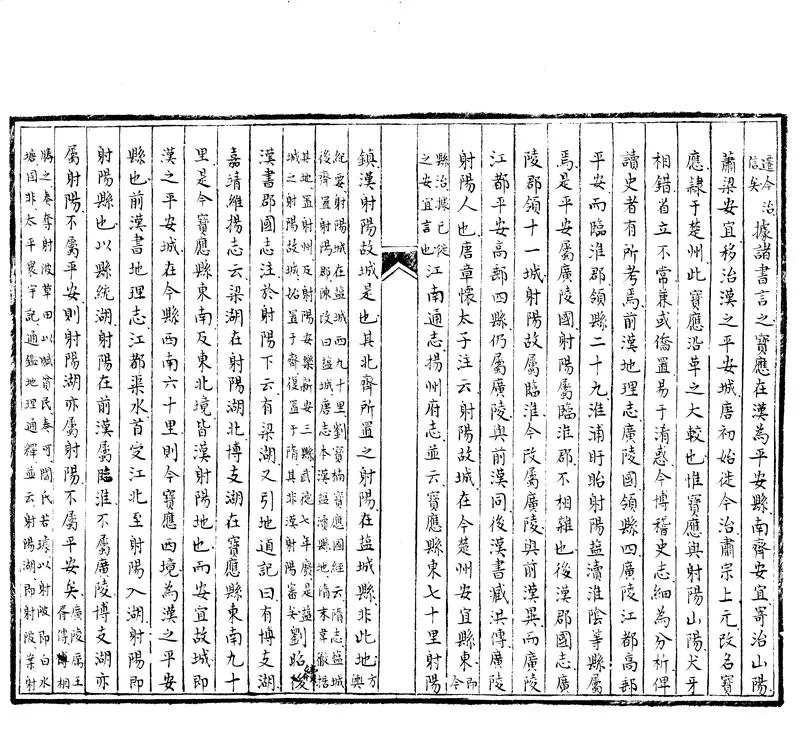 遷今治
信矣
據諸書言之寶應在漢為平安縣南齊安宜寄治山陽
蕭梁安宜移治漢之平安城唐初始徙今治肅宗上元改名寶
應隸于楚州此寶應沿革之大較也惟寶應與射陽山陽犬牙
相錯省立不常兼或僑置易于淆惑今博稽史志細為分析俾
讀史者有所考焉前漢地理志廣陵國領縣四廣陵江都高郵
平安而臨淮郡領縣二十九淮浦盱眙射陽鹽瀆淮陰等縣屬
焉是平安屬廣陵國射陽屬臨淮郡不相雜也後漢郡國志廣
陵郡領十一城射陽故屬臨淮今改屬廣陵與前漢異而廣陵
江都平安高郵四縣仍屬廣陵與前漢同後漢書臧洪傳廣陵
射陽人也唐章懷太子注云射陽故城在今楚州安宜縣東
即今
縣治據已徙
之安宜言也
江南通志揚州府志並云寶應縣東七十里射陽
鎮漢射陽故城是也其北齊所置之射陽在鹽城縣非此地
方輿
紀要射陽城在鹽城西九十里劉寶楠寶應圖經云隋志鹽城
後齊置射陽郡陳改曰鹽城唐志本漢鹽瀆縣地隋末韋徹據
其地置射州及射陽安樂新安三縣武德七年廢是鹽
城之射陽故城始置于齊復置于隋其非漢射陽審矣
劉昭後
漢書郡國志注於射陽下云有梁湖又引地道記曰有博支湖
嘉靖維揚志云梁湖在射陽湖北博支湖在寶應縣東南九十
里是今寶應縣東南及東北境皆漢射陽地也而安宜故城即
漢之平安城在今縣西南六十里則今寶應西境為漢之平安
縣也前漢書地理志江都渠水首受江北至射陽入湖射陽即
射陽縣也以縣統湖射陽在前漢屬臨淮不屬廣陵博支湖亦
屬射陽不屬平安則射陽湖亦屬射陽不屬平安矣
廣陵厲王
胥傳相
勝之奏奪射陂草田以賦貧民奏可閻氏若璩以射陂即白水
塘固非太平寰宇記通鑑地理通釋並云射陽湖即射陂案射